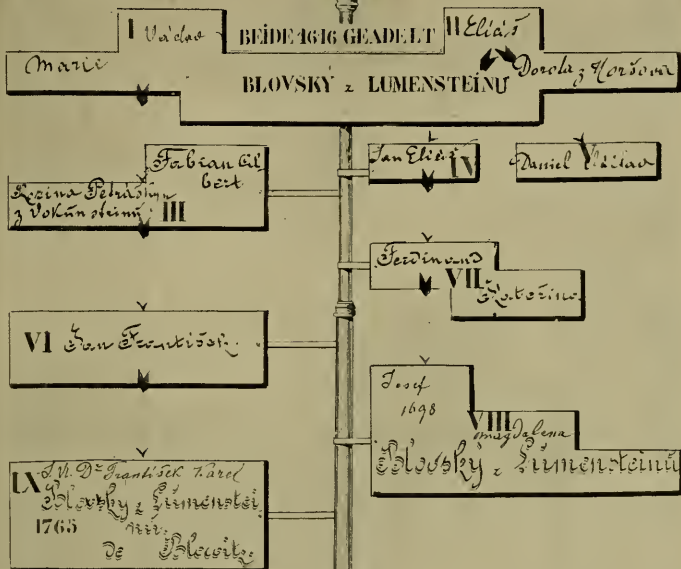 I Václav
BEIDE 1616 GEADELT
II Eliáš
Marie
Dorota z Horšova
BLOVSKÝ z LUMENSTEINU
Fabian Gil
bert
Rozina Petráčkyn
z Vokûnsteinû III
Jan Eliáš IV
V
Daniel Václav
Ferdinand
VII
Kateřina
VI Jan František
Josef
1698
VIII
Magdalena
Blovský z Lûmensteinû
IX J. U. Dr. František Karel
Blovský z Lûmenstei
nû
1765
de Blowitz